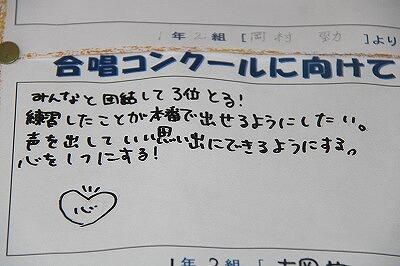 1年2組 [岡村 勁 ]より
合唱コンクールに向けて
みんなと団結して3位とる!
練習したことが本番で出せるようにしたい。
声を出していい思い出にできるようにする。
心を1つにする!
心
1年2組 [